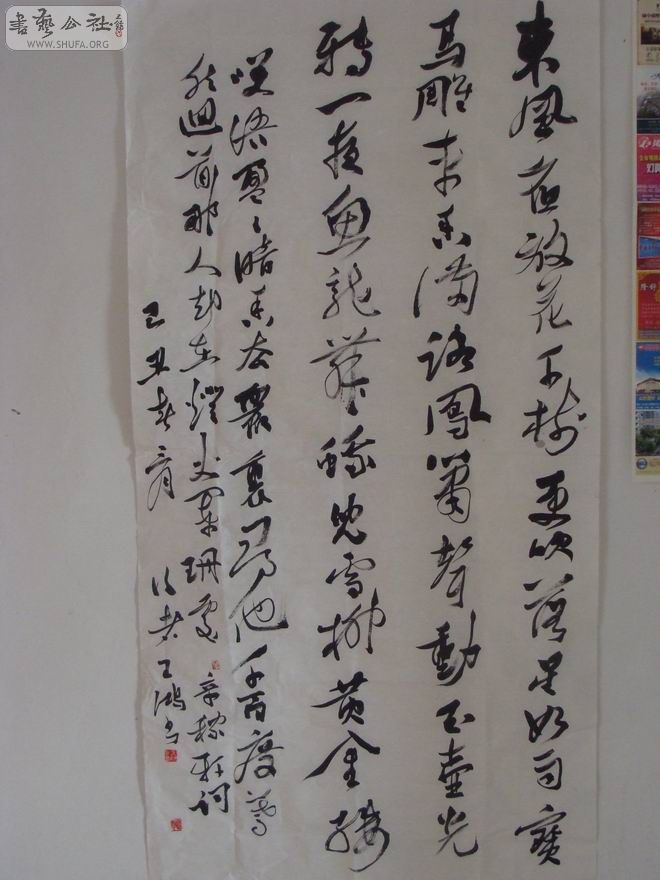 書藝公社
WWW.SHUFA.ORG
東風夜放花千樹更吹落星如雨寶
馬雕車香滿路鳳簫聲動玉壺光
轉一夜魚龍舞蛾兒雪柳黃金縷
笑語盈〻暗香去眾裏尋他千百度驀
然迴首那人卻在燈火闌珊處 辛稼軒詞
己丑春 王鴻